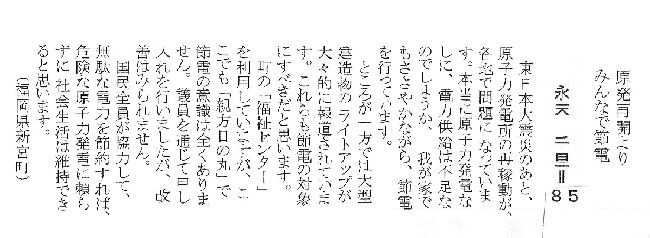 原発再開より
みんなで節電
永末 二旦 ＝ 85
東日本大震災のあと、
原子力発電所の再稼動が、
各地で問題になっていま
す。本当に原子力発電な
しに、電力供給は不足な
のでしょうか、我が家で
もささやかながら、節電
を行っています。
ところが一方では大型
建造物のライトアップが
大々的に報道されていま
す。これらも節電の対象
にすべきだと思います。
町の「福祉センター」
を利用していますが、こ
こでも「親方日の丸」で
節電の意識は全くありま
せん。議員を通じて申し
入れを行いましたが、改
善はみられません。
国民全員が協力して、
無駄な電力を節約すれば、
危険な原子力発電に頼ら
ずに 社会生活は維持でき
ると思います。
（福岡県新宮町）